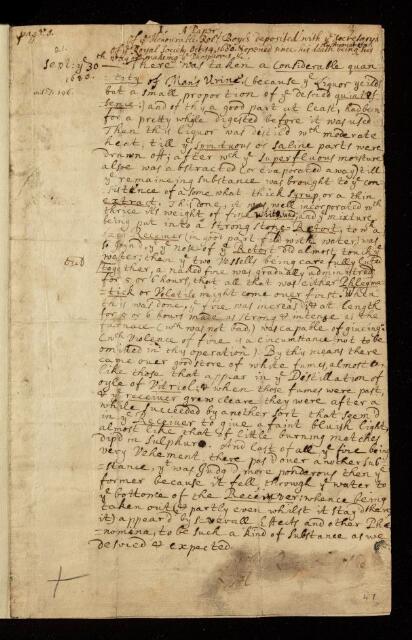 pag: 8.
A Paper
of ye Honourable Robt Boyle's deposited with ye Secretarys
of ye Royal Society Octr 14. 1680. & opened since his death being his
way of making ye Phosphorus &c.
Sept: ye 30th
1680.
There was taken a Considerable quan-
tity of Mans Urine (because ye Liquor yeilds
but a small proportion of ye desired quint
essence) and of this a good part at least, had been
for a pretty while digested before it was used
Then this liquor was distild wth moderate
heat, till ye spirituous or saline parts were
drawn off; after wch ye Superfluous moisture
alsoe was abstracted (or evaporated away) till
ye remaining substance was brought to ye con-
sistence of a somewhat thick Syrup, or a thin
extract. This done, it was well incorporated wth
thrice its weight of fine white sand, and ye mixture
being put into a strong stone-Retort, to wch a
large Receiver (in good part filld with water) was
so Joyn'd yt ye nose of ye Retort did almost touch ye
water; then ye two Vessells being carefully luted
together, a naked fire was gradually administred
for 5 or 6 hours, that all that was either Phlegma-
tick or Volatile might come over first. When
this was done, ye fire was increasd & at length
for 5 or 6 hours made as strong & intense as the
furnace (wch was not bad) was capable of giveing
(wch violence of fire is a circumstance not to be
omitted in this operation). By this means there
came over good store of white fumes almost
like those that appear in ye Distillation of
oyle of Vitriol; & when those fumes were past,
& ye receiver grew cleare they were after a
while succeeded by another sort that seem'd
in ye Receiver to give a faint blwish light,
almost like that of little burning matches
dipd in Sulphur. And last of all ye fire being
very Vehement, there pass'd over another sub-
stance, yt was Judg'd more ponderous then ye
former because it fell through ye water to
ye bottome of the Receiver: whence being
taken out (& partly even whilst it stay'd there
it) appear'd by severall Effects and other Phæ-
nomena, to be such a kind of substance as we
desired & expected
41